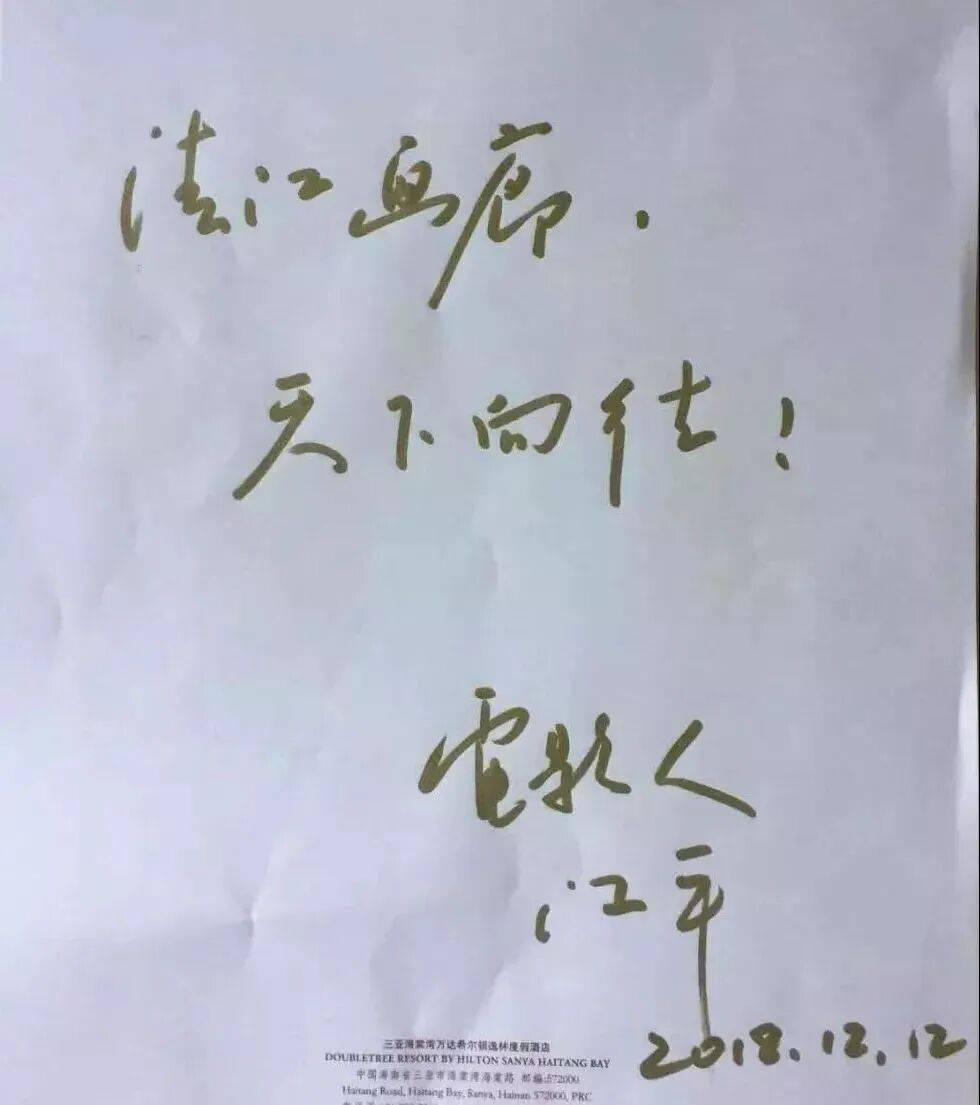 清江画廊.
天下向往!
電影人
江平
2018.12.12
三亚海棠湾万达希尔顿逸林度假酒店
DOUBLETREE RESORT BY HILTON SANYA HAITANG BAY
中国海南省三亚市海棠湾海棠路 邮编:572000
Haitang Road, Haitang Bay, Sanya, Hainan 572000, PRC